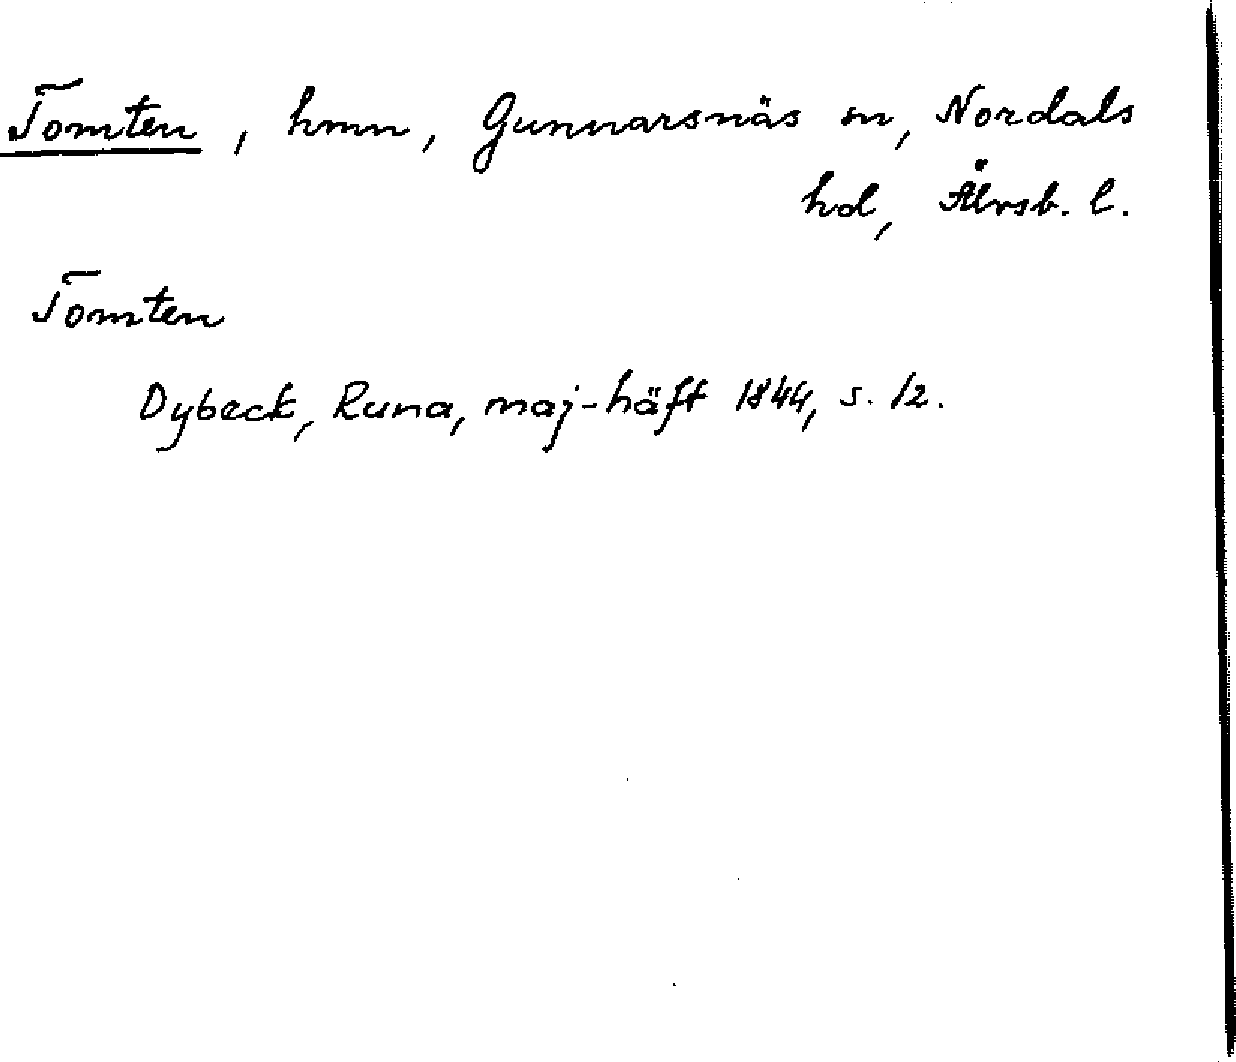 Tomten, hmn, Gunnarsnäs sn, Nordals
hd, Älvsb. l.
Tomten
Dybeck, Runa, maj-häft 1844, s. 12.